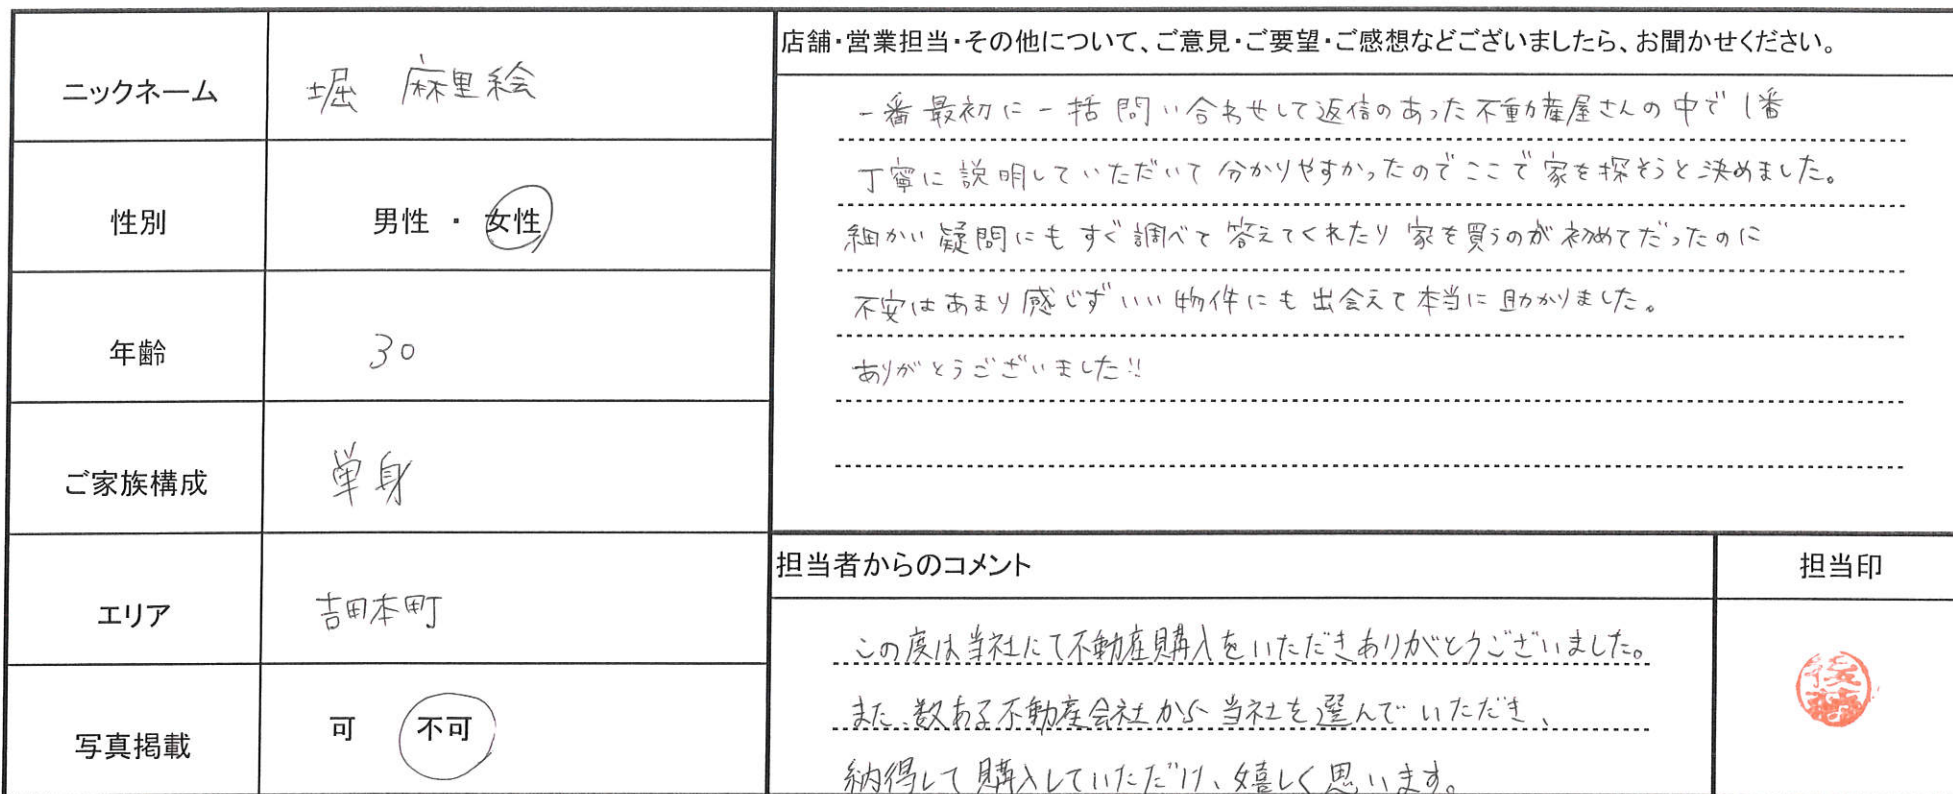 ニックネーム
堀 麻里絵
性別
男性 ・ 女性
年齢
30
ご家族構成
単身
エリア
吉田本町
写真掲載
可 不可
店舗・営業担当・その他について、ご意見・ご要望・ご感想などございましたら、お聞かせください。
一番最初に一括問い合わせして返信のあった不動産屋さんの中で1番
丁寧に説明していただいて分かりやすかったのでここで家を探そうと決めました。
細かい疑問にもすぐ調べて答えてくれたり家を買うのが初めてだったのに
不安はあまり感じずいい物件にも出会えて本当に助かりました。
ありがとうございました!!
担当者からのコメント
この度は当社にて不動産購入をいただきありがとうございました。
また、数ある不動産会社から当社を選んでいただき、
納得して購入していただけ、嬉しく思います。
担当印
後藤